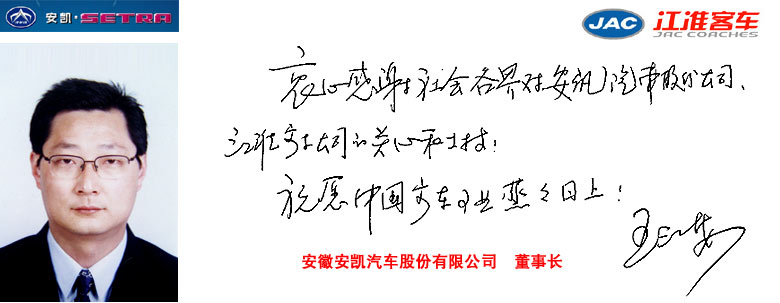 安凯·SETRA
JAC 江淮客车
JAC COACHES
衷心感谢社会各界对安凯汽车股份公司、
江淮客车公司的关心和支持！
祝愿中国客车工业蒸々日上！
王江安
安徽安凯汽车股份有限公司 董事长